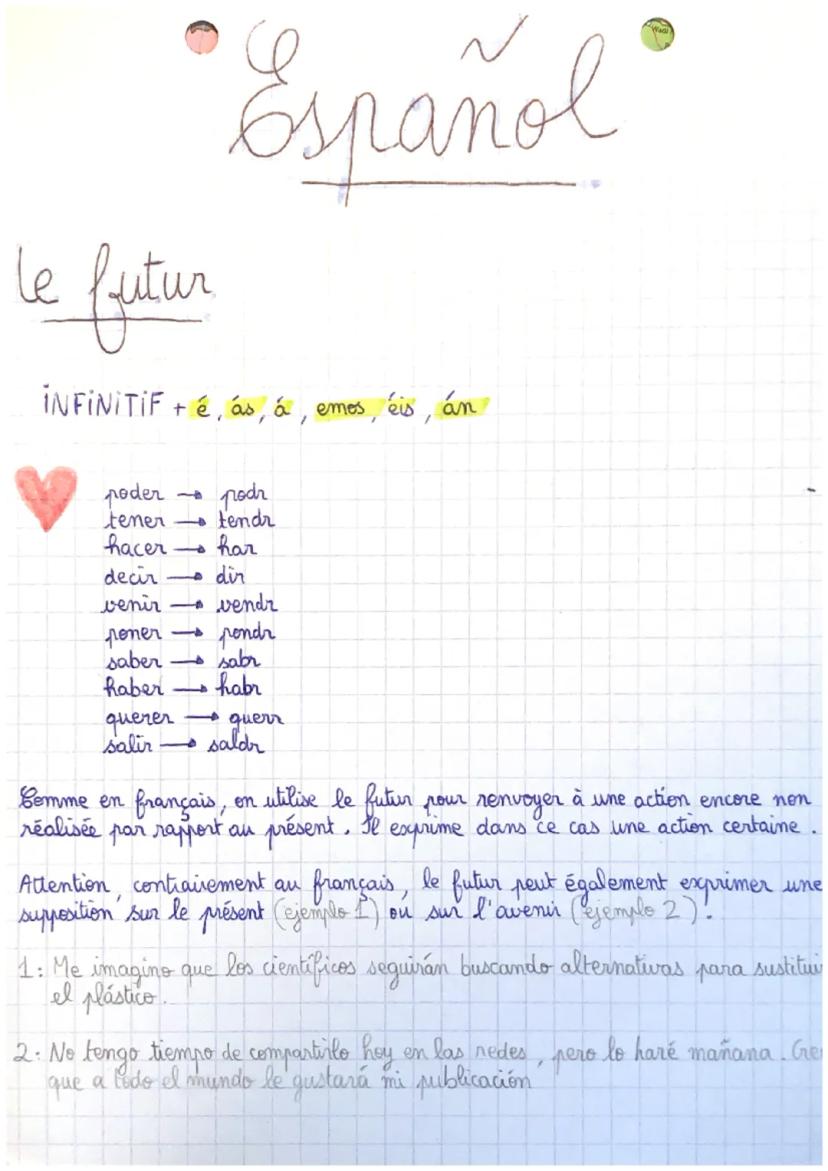 Español
le futur
INFINITIF + é, ás, á, emos, éis, án
poder → podr
tener → tendr
hacer → har
decir → dir
venir → vendr
poner → pondr
saber → sabr
haber → habr
querer → querr
salir → saldr
Comme en français, on utilise le futur pour renvoyer à une action encore non
réalisée par rapport au présent. Il exprime dans ce cas une action certaine.
Attention, contrairement au français, le futur peut également exprimer une
supposition sur le présent (ejemplo 1) ou sur l'avenir (ejemplo 2).
1: Me imagino que los científicos seguirán buscando alternativas para sustitui
el plástico.
2: No tengo tiempo de compartirlo hoy en las redes, pero lo haré mañana. Cre
que a todo el mundo le gustará mi publicación